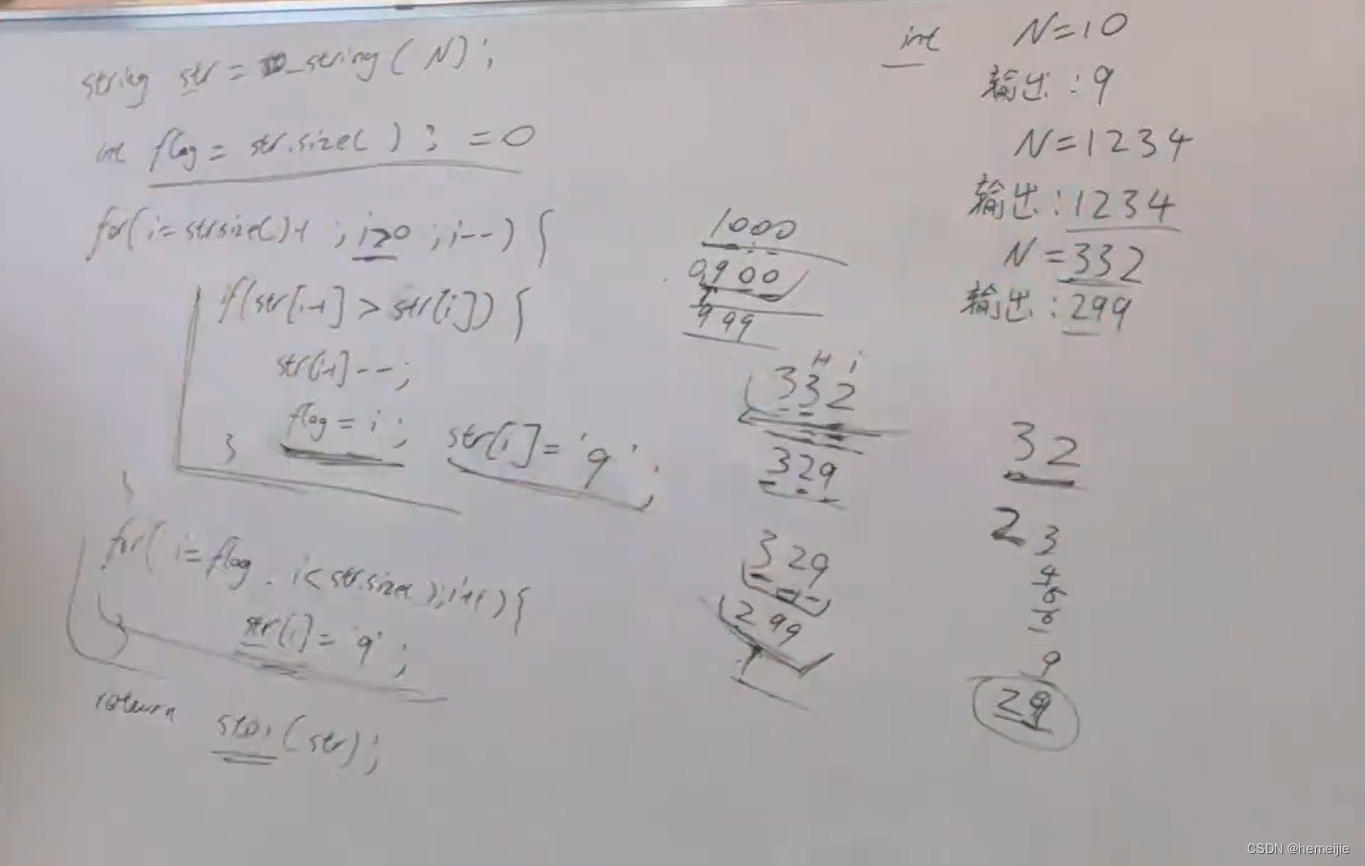 string str = to_string(N);
int flag = str.size( ); =0
for(i=str.size()-1 ; i>0 ; i--) {
if(str[i-1] > str[i]) {
str[i-1]--;
flag = i ;
str[i]='9' ;
}
}
for( i=flag . i< str.size( ); i++) {
str[i]= '9' ;
}
return stoi(str);
1000
0900
999
i-1 i
332
329
329
299
int N=10
输出:9
N=1234
输出:1234
N=332
输出:299
32
2 3
4
5
6
9
29
CSDN @hemeijie